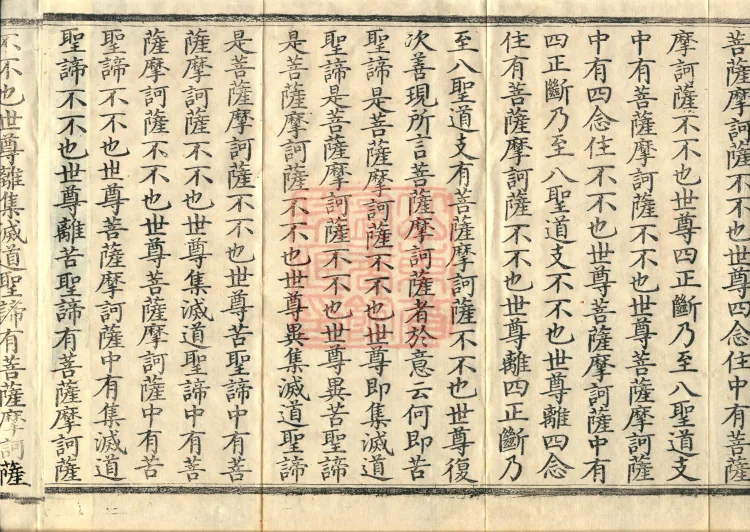 菩薩摩訶薩不不也世尊四念住中有菩薩
摩訶薩不不也世尊四正斷乃至八聖道支
中有菩薩摩訶薩不不也世尊菩薩摩訶薩
中有四念住不不也世尊菩薩摩訶薩中有
四正斷乃至八聖道支不不也世尊離四念
住有菩薩摩訶薩不不也世尊離四正斷乃
至八聖道支有菩薩摩訶薩不不也世尊復
次善現所言菩薩摩訶薩者於意云何即苦
聖諦是菩薩摩訶薩不不也世尊即集滅道
聖諦是菩薩摩訶薩不不也世尊異苦聖諦
是菩薩摩訶薩不不也世尊異集滅道聖諦
是菩薩摩訶薩不不也世尊苦聖諦中有菩
薩摩訶薩不不也世尊集滅道聖諦中有菩
薩摩訶薩不不也世尊菩薩摩訶薩中有苦
聖諦不不也世尊菩薩摩訶薩中有集滅道
聖諦不不也世尊離苦聖諦有菩薩摩訶薩
不不也世尊離集滅道聖諦有菩薩摩訶薩